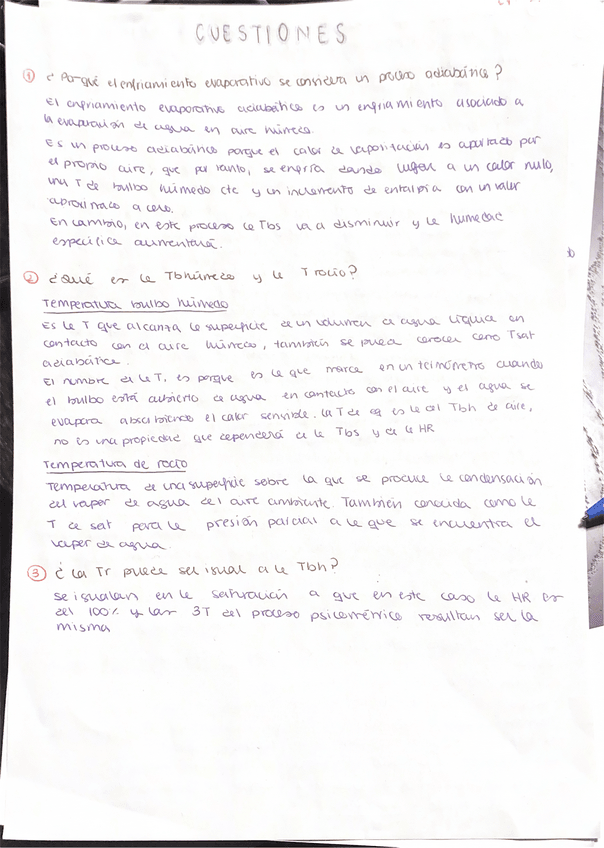 CUESTIONES
① ¿Porqué el enfriamiento evaporativo se considera un proceso adiabático?
El enfriamiento evaporativo adiabático es un enfriamiento asociado a
la evaporación de agua en aire húmedo.
Es un proceso adiabático porque el calor de vaporización es aportado por
el propio aire, que por tanto, se enfría dando lugar a un calor nulo,
una T de bulbo húmedo cte y un incremento de entalpía con un valor
aproximado a cero.
En cambio, en este proceso la Tbs va a disminuir y la humedad
específica aumentará.
② ¿Qué es la Tbhúmedo y la T rocío?
Temperatura bulbo húmedo
Es la T que alcanza la superficie de un volumen de agua líquida en
contacto con el aire húmedo, también se puede conocer como Tsat
adiabática.
El nombre de la T, es porque es la que marca en un termómetro cuando
el bulbo está cubierto de agua en contacto con el aire y el agua se
evapora absorbiendo el calor sensible. La T de eq es la del Tbh de aire,
no es una propiedad que dependerá de la Tbs y de la HR
Temperatura de rocío
Temperatura de una superficie sobre la que se produce la condensación
del vapor de agua del aire ambiente. También conocida como la
T de sat para la presión parcial a la que se encuentra el
vapor de agua.
③ ¿La Tr puede ser igual a la Tbh?
Se igualan en la saturación a que en este caso la HR es
del 100% y las 3T del proceso psicométrico resultan ser la
misma